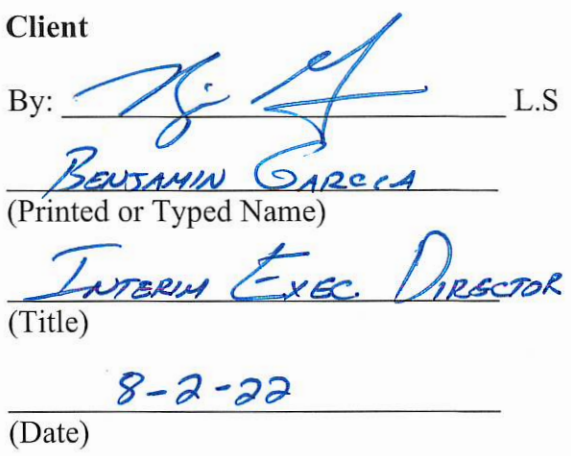 Client
By: L.S
BENJAMIN GARCIA
(Printed or Typed Name)
INTERIM EXEC. DIRECTOR
(Title)
8-2-22
(Date)